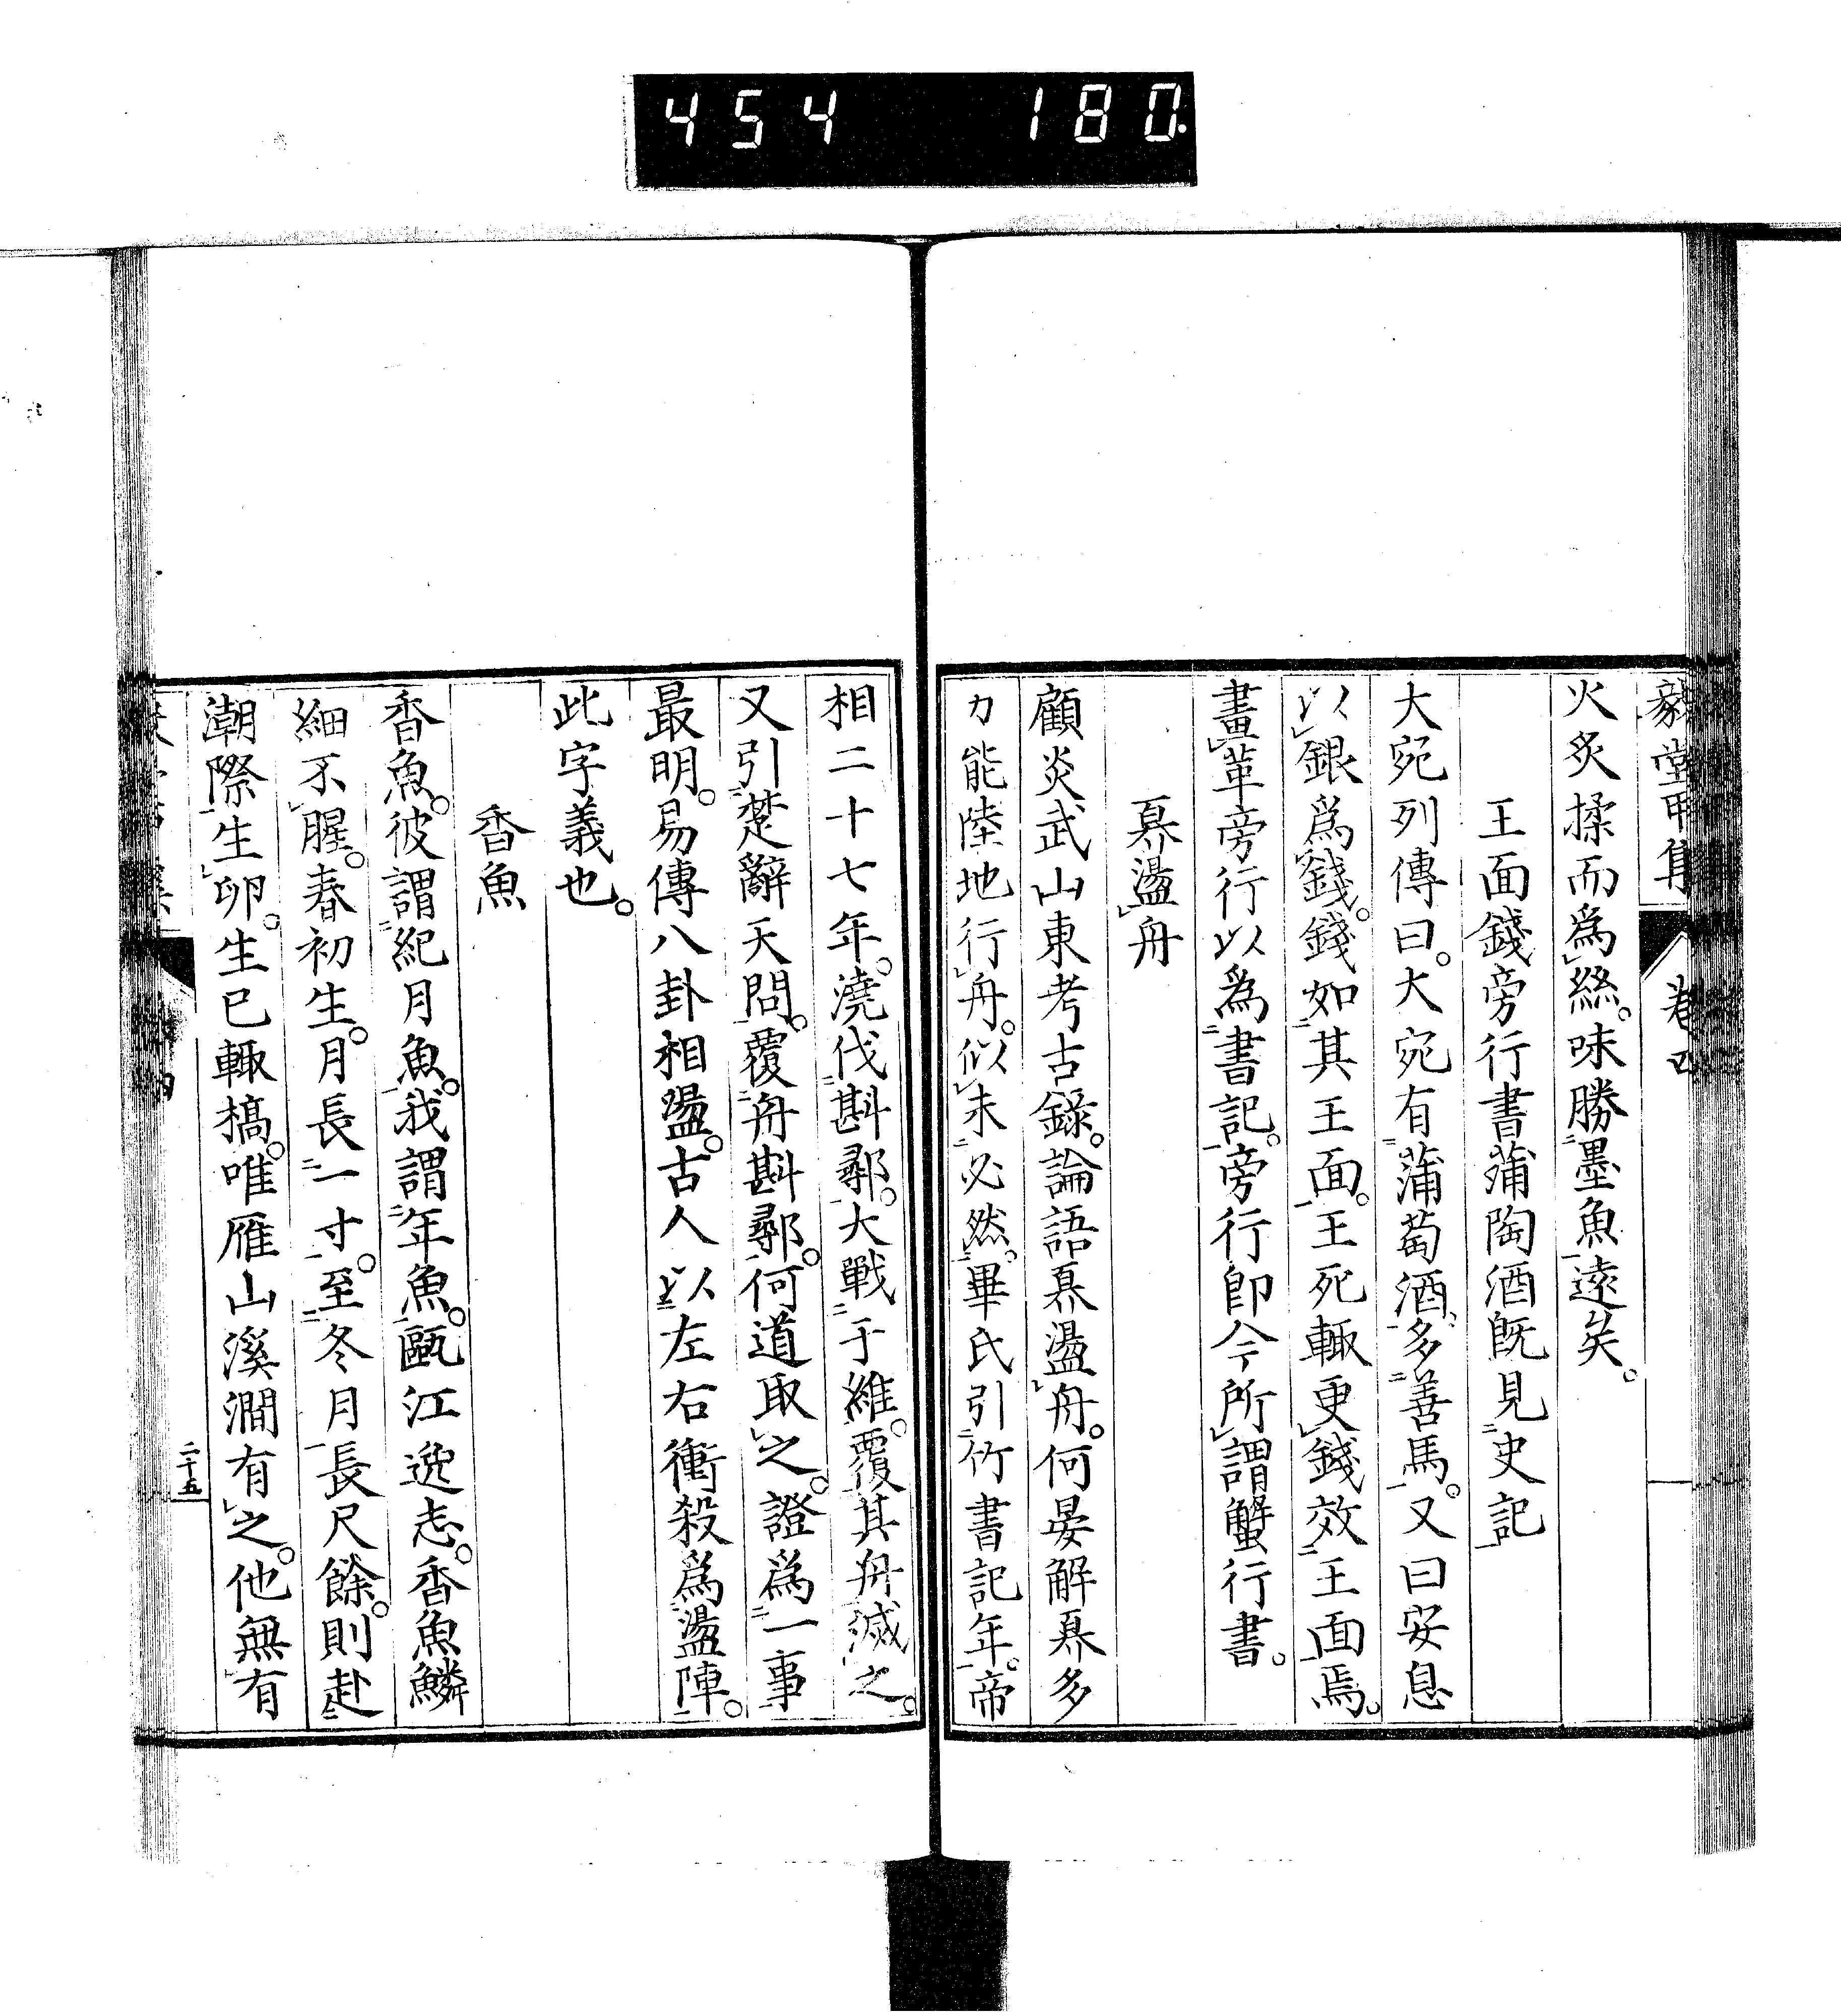 454 180.
毅堂甲集 卷四
火炙揉而爲絲。味勝墨魚遠矣。
王面錢旁行書蒲陶酒既見史記
大宛列傳曰。大宛有蒲萄酒。多善馬。又曰安息
以銀爲錢。錢如其王面。王死輒更錢效王面焉。
畫革旁行以爲書記。旁行即今所謂蟹行書。
奡盪舟
顧炎武山東考古錄。論語奡盪舟。何晏解奡多
力能陸地行舟。似未必然。畢氏引竹書記年。帝
相二十七年。澆伐斟鄩。大戰于維。覆其舟滅之。
又引楚辭天問。覆舟斟鄩。何道取之。證爲一事
最明。易傳八卦相盪。古人以左右衝殺爲盪陣。
此字義也。
香魚
香魚。彼謂紀月魚。我謂年魚。甌江逸志。香魚鱗
細不腥。春初生。月長一寸。至冬月長尺餘。則赴
潮際生卵。生已輒槁。唯雁山溪澗有之。他無有
二十五